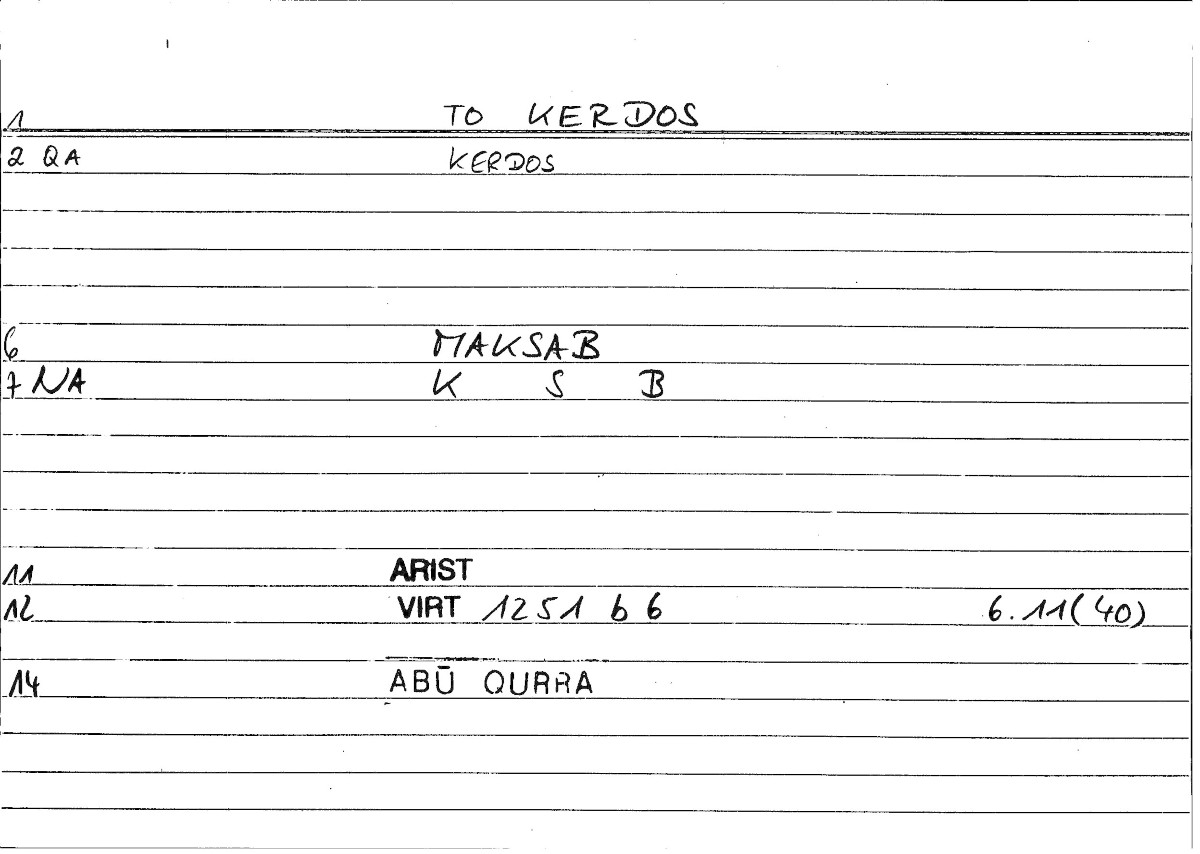 1 TO KERDOS
2 QA KERDOS
6 MAKSAB
7 NA K S B
11 ARIST
12 VIRT 1251 b 6 6.11(40)
14 ABŪ QURRA